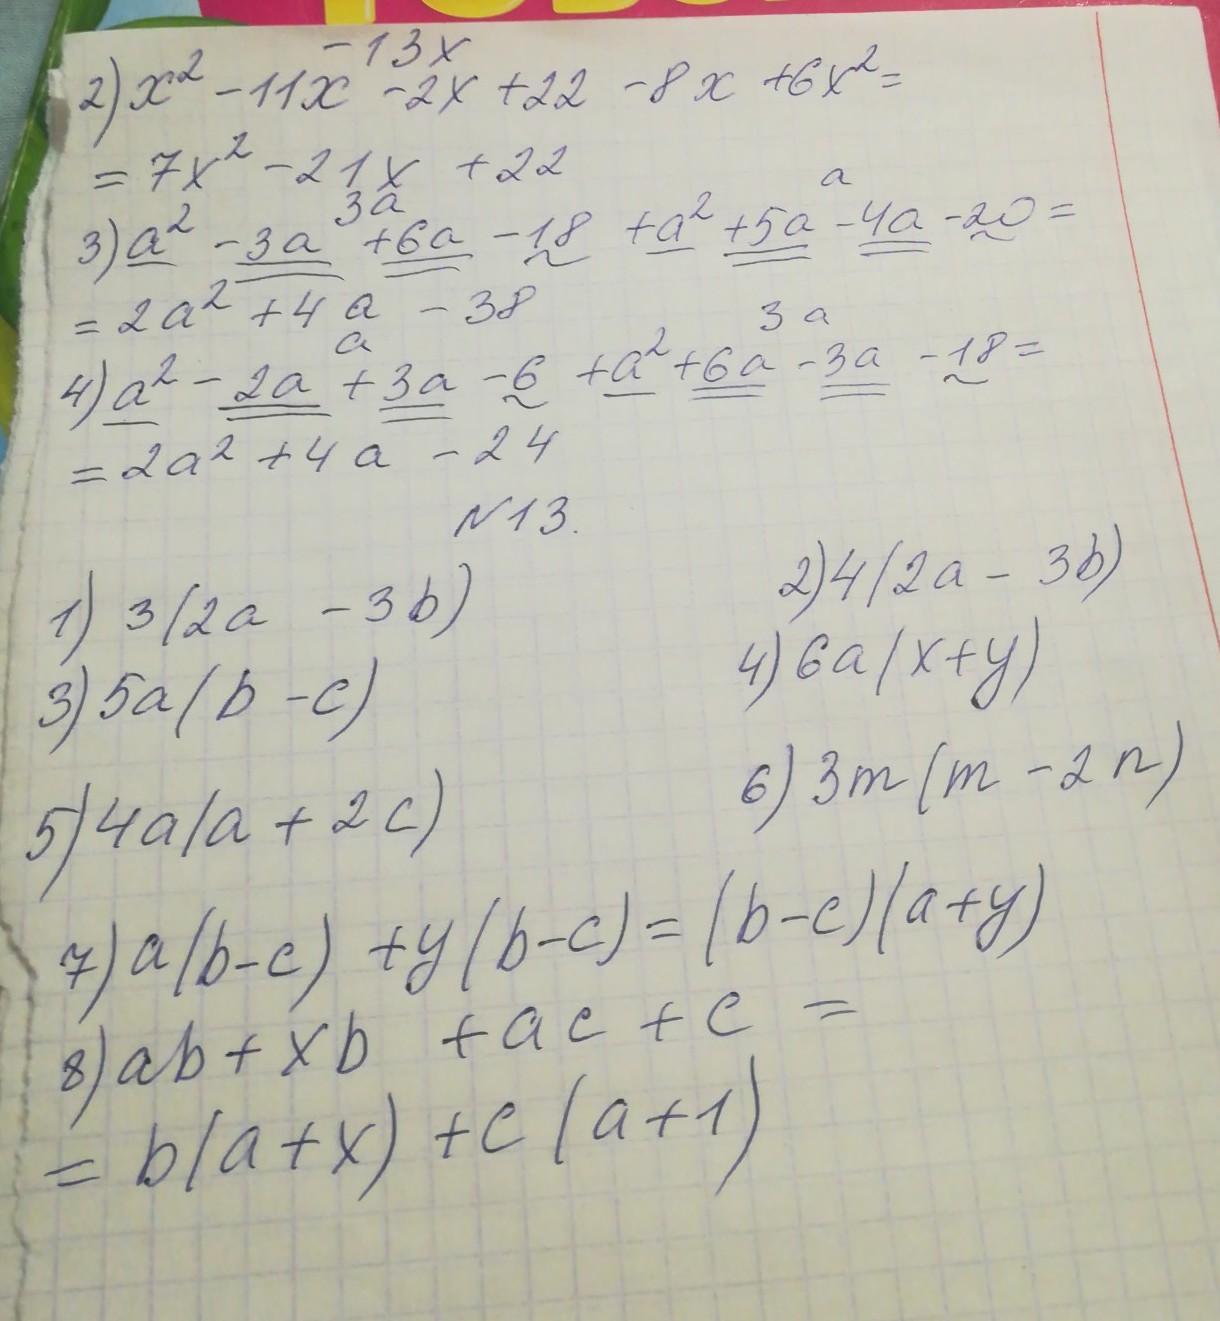 -13x
2) x² -11x -2x +22 -8x +6x² =
= 7x² -21x +22
3a a
3) a² -3a +6a -18 +a² +5a -4a -20 =
= 2a² +4a -38
a 3a
4) a² -2a +3a -6 +a² +6a -3a -18 =
= 2a² +4a -24
N13.
1) 3(2a -3b) 2) 4(2a - 3b)
3) 5a(b -c) 4) 6a(x+y)
5) 4a(a + 2c) 6) 3m(m -2n)
7) a(b-c) +y(b-c) = (b-c)(a+y)
8) ab+xb +ac +c =
= b(a+x) +c(a+1)